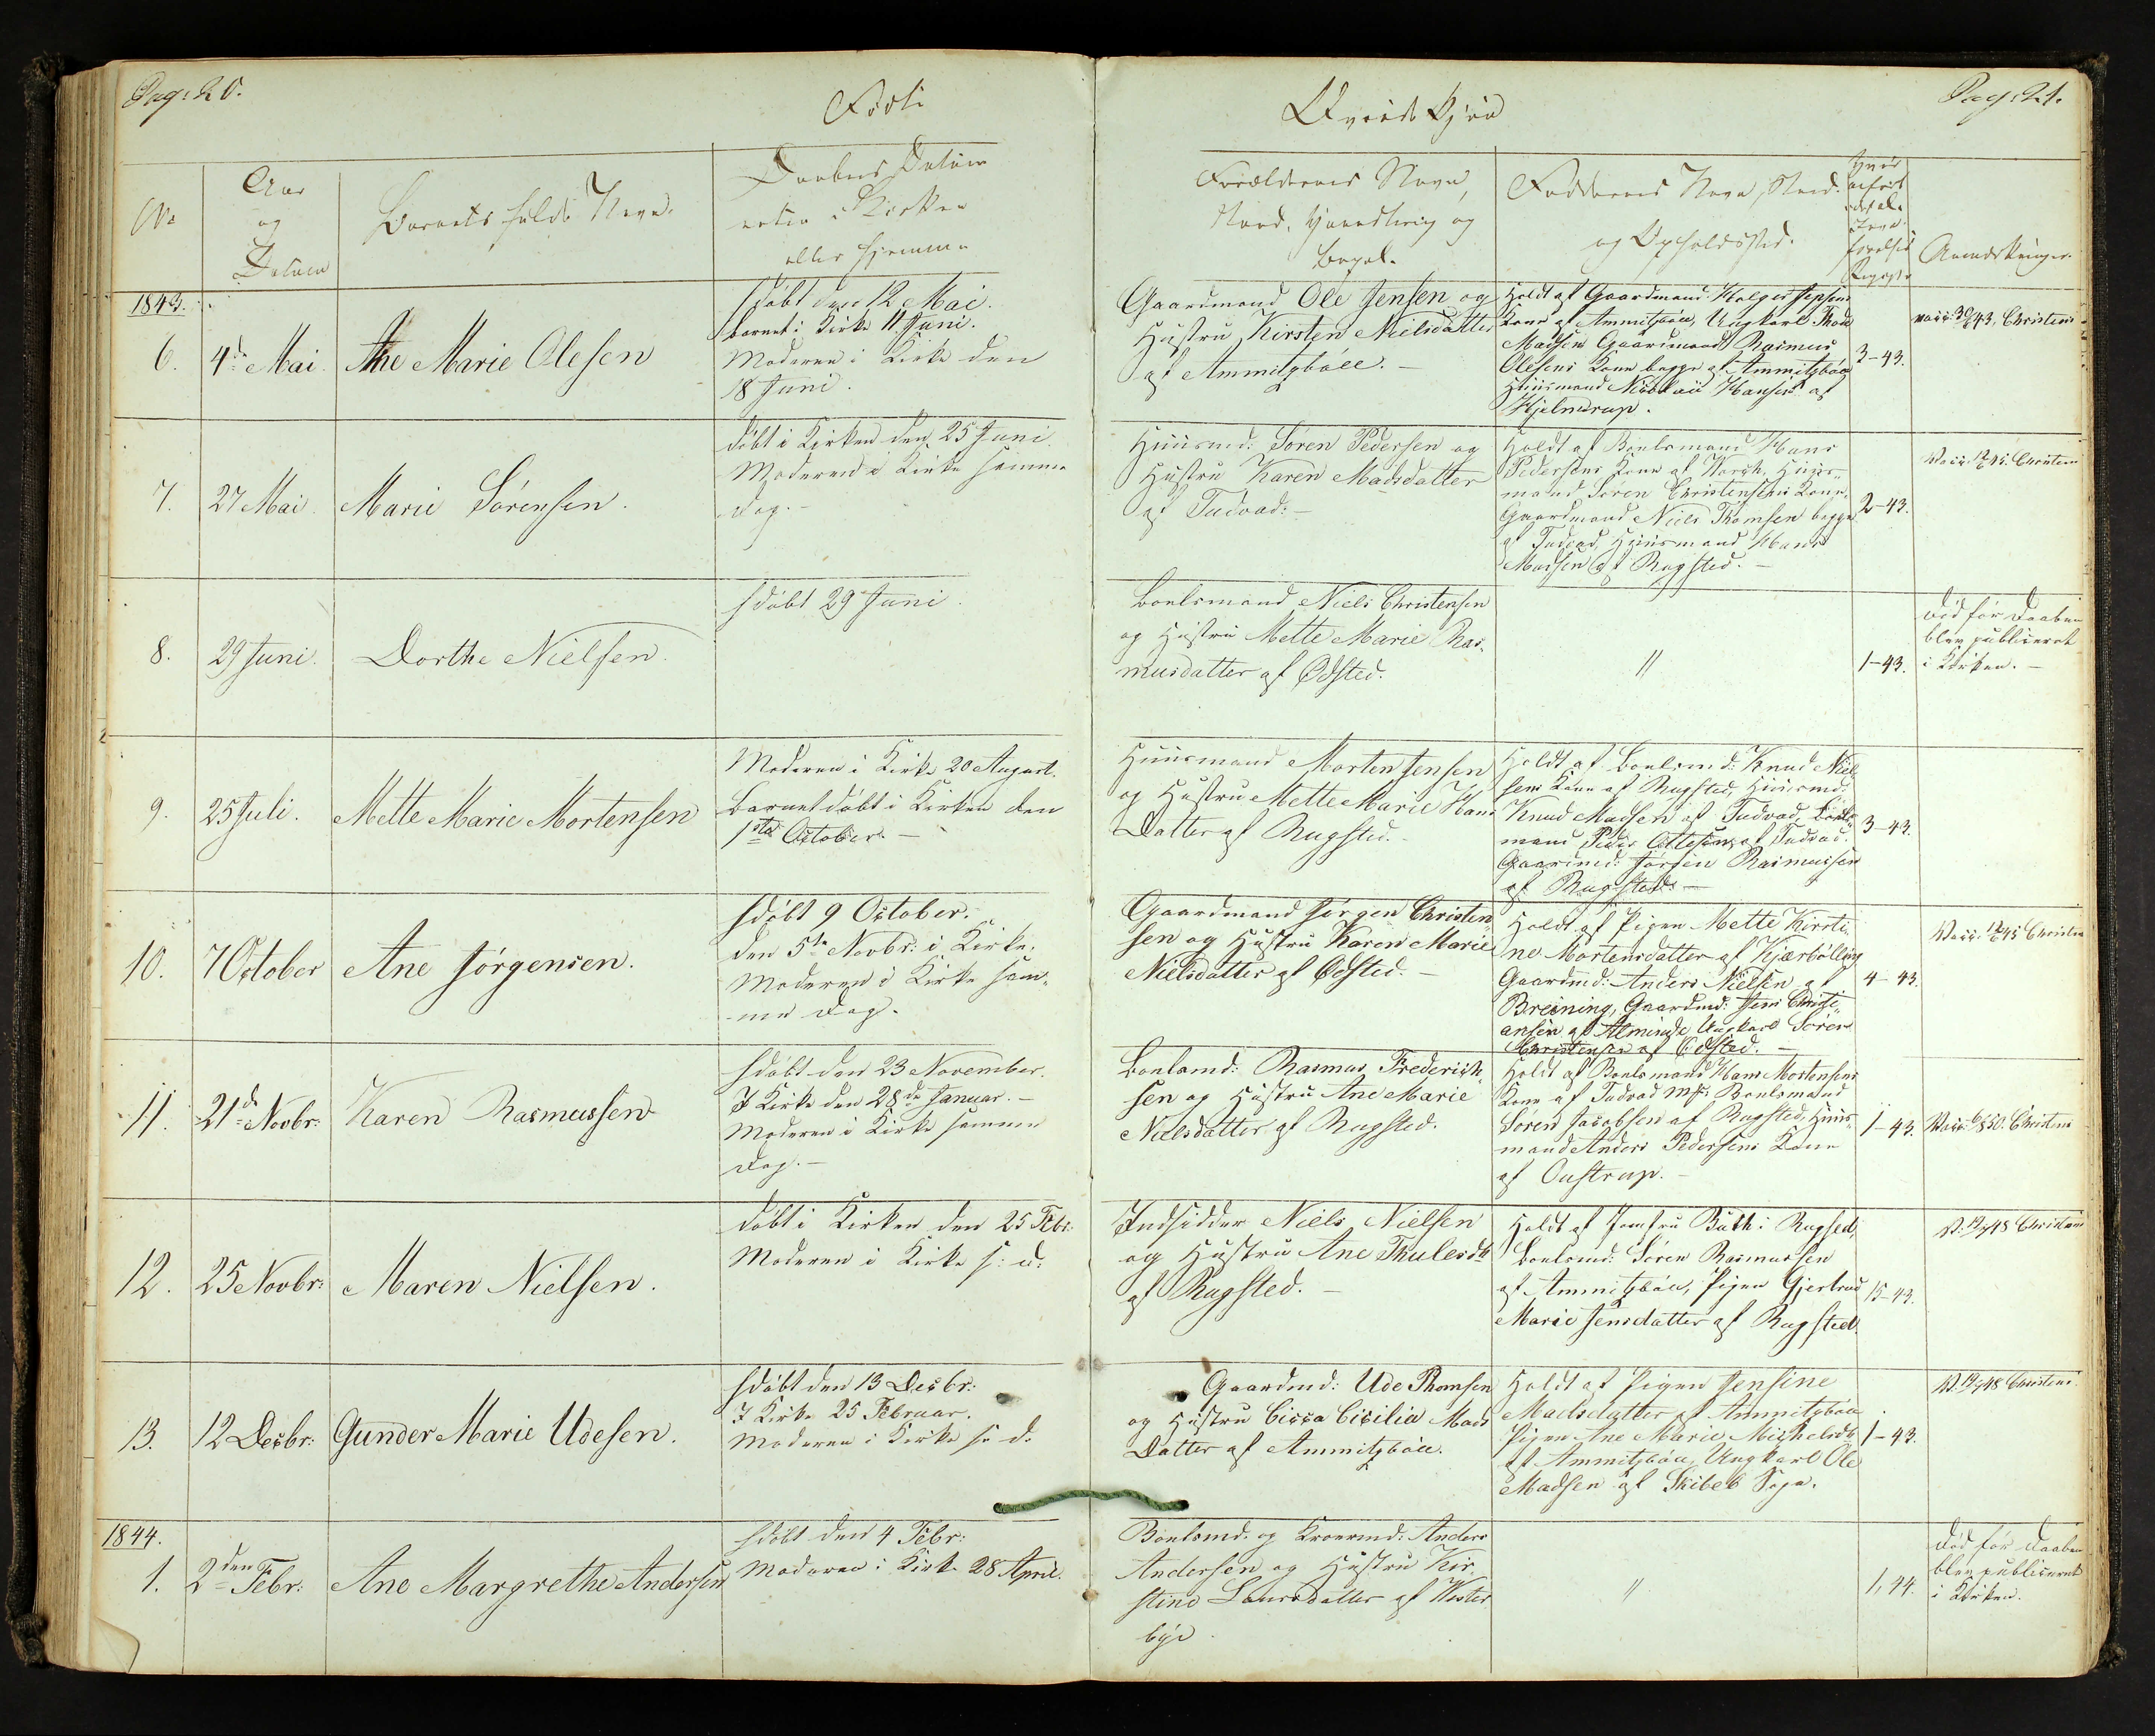 Pag: 20.
Födte
Qvindekjön
Pag: 21.
No
Aar
og
Datum
Barnets fulde Navn.
Daabens Datum
enten i Kirken
eller hjemme
Forældrenes Navn,
Stand, Haandtering og
Bopæl.
Faddernes Navn, Stand
og Opholdssted.
Anmærkninger.
1843.
6.
4de Mai.
Ane Marie Olesen
hdöbt den 12 Mai.
barnet i Kirke 11 Juni.
Moderen i Kirke den
18 Juni.
Gaardmand Ole Jensen og
Hustru Kirsten Nielsdatter
af Ammitzböll. –
Holdt af Gaardmand Holger Jepsens
Kone af Ammitzböll, Ungkarl
Madsen Gaardmand Rasmus
Olesens Kone begge af Ammitzböll
Huusmand Nicolai Hansen af
Hjelmdrup.
3–43.
7.
27 Mai.
Marie Sörensen.
döbt i Kirken den 25 Juni
Moderen i Kirke samme
Dag. –
Huusmd: Sören Pedersen og
Hustru Karen Madsdatter
af Tudvad: –
Holdt af Boelsmand Hans
Pedersens Kone af Huus-
mand Sören Christensens Kone,
Gaardmand Niels Thomsen begge
af Tudvad, Huusmand Hans
Madsen af Rugsted. –
2–43.
8.
29 Juni.
Dorthe Nielsen.
hdöbt 29 Juni.
Boelsmand Niels Christensen
og Hustru Mette Marie Ras-
musdatter af Ødsted.
//
1–43.
Död för Daaben
blev publiceret
i Kirken. –
9.
25 Juli.
Mette Marie Mortensen
Moderen i Kirke 20 August.
Barnet döbt i Kirken den
1ste October. –
Huusmand Morten Jensen
og Hustru Mette Marie Hans
Datter af Rugsted. –
Holdt af Boelsmd: Knud Niel-
sens Kone af Rugsted, Huusmd:
Knud Madsen af Tudvad, Boels-
mand Peder Ottesen af Tudvad.
Gaardmd: Jörgen Rasmussen
af Rugsted. –
3–43.
10.
7 October
Ane Jörgensen.
hdöbt 9 October.
den 5te Novbr: i Kirke.
Moderen i Kirke sam-
me Dag.
Gaardmand Jörgen Christen-
sen og Hustru Karen Marie
Nielsdatter af Ødsted. –
Holdt af Pigen Mette Kirsti-
ne Mortensdatter af Kjærbölling
Gaardmd: Anders Nielsen af
Breining, Gaardmd: Jens Christi-
ansen af Alminde, Ungkarl Sören
Christensen af Ødsted. –
4–43.
11.
21de Novbr:
Karen Rasmussen
hdöbt den 23 November.
I Kirke den 28de Januar. –
Moderen i Kirke samme
Dag. –
Boelsmd: Rasmus Frederich-
sen og Hustru Ane Marie
Nielsdatter af Rugsted.
Holdt af Boelsmand Hans Mortensens
Kone af Tudvad Boelsmand
Sören Jacobsen af Rugsted, Huus-
mand Anders Pedersens Kone
af Oustrup. –
1–43.
12.
25 Novbr:
Maren Nielsen.
döbt i Kirken den 25 Febr:
Moderen i Kirke s: d:
Indsidder Niels Nielsen
og Hustru Ane Thulesdtr
af Rugsted. –
Holdt af Jomfru Buth i Rugsted,
Boelsmd: Sören Rasmussen
af Ammitzböll, Pigen Gjertrud
Marie Jensdatter af Rugsted.
15–43.
13.
12 Decbr:
Gunder Marie Udesen.
hdöbt den 13 Decbr:
I Kirke 25 Februar.
Moderen i Kirke s: d:
Gaardmd: Ude Thomsen
og Hustru Cicilia Mads
Datter af Ammitzböll.
Holdt af Pigen Jensine
Madsdatter af Ammitzböll
Pigen Ane Marie Michelsdtr
af Ammitzböll, Ungkarl Ole
Madsen af Skibet Sogn.
1–43.
1844.
1.
2den Febr:
Ane Margrethe Andersen
hdöbt den 4 Febr:
Moderen i Kirke 28 April.
Boelsmd. og Kroermd: Anders
Andersen og Hustru Kir-
stine Laursdatter af Wester
bye.
//
1, 44.
Död för Daaben
blev publiceret
i Kirken.